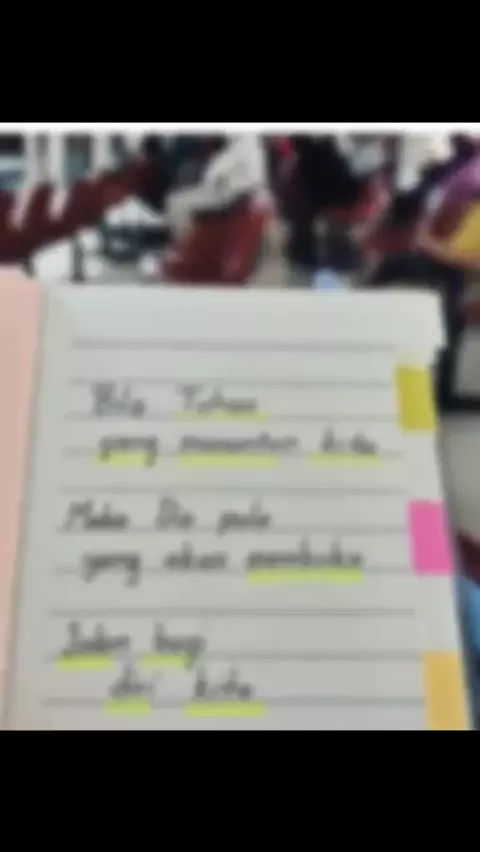 Bila Tuhan
yang menuntun kita
Maka Dia pula
yang akan membuka
Jalan bagi
diri kita